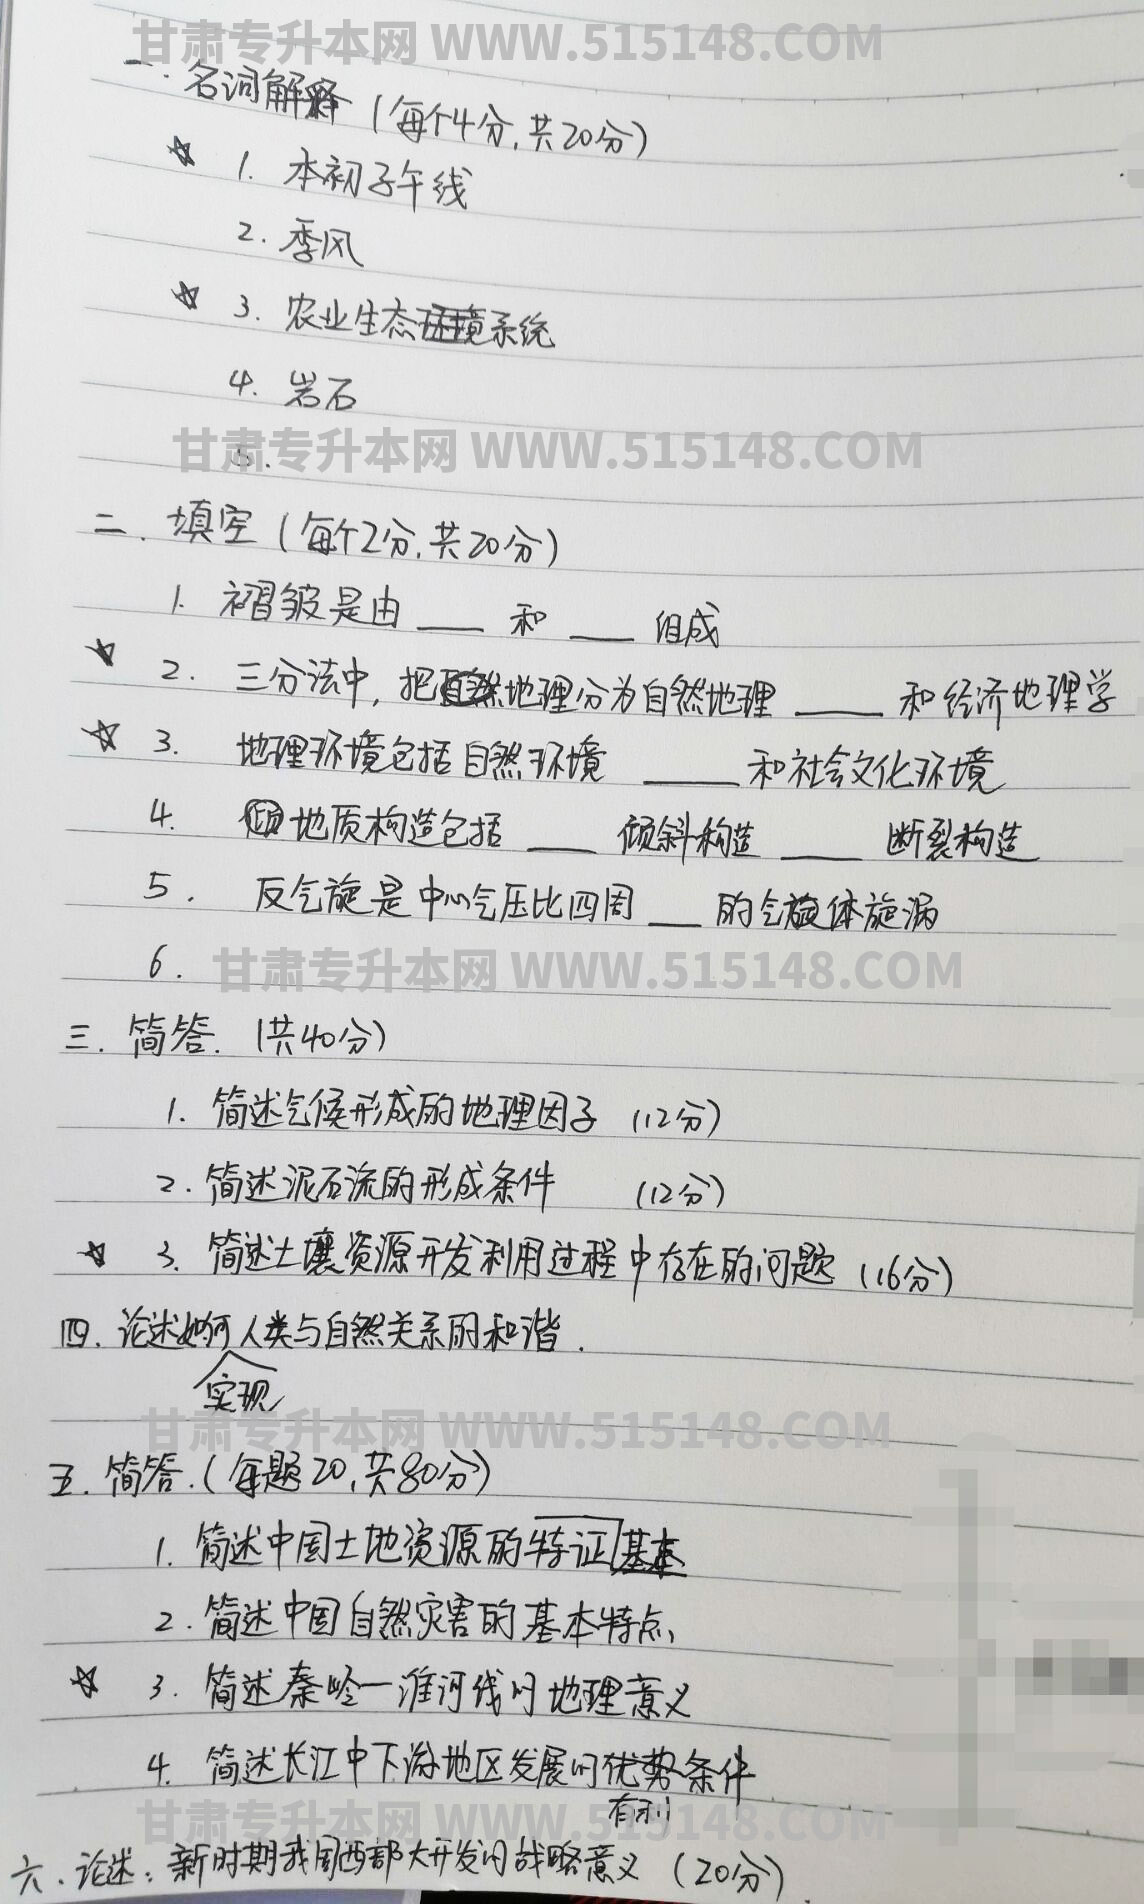 甘肃专升本网 WWW.515148.COM
一.名词解释（每个4分,共20分）
☆ 1. 本初子午线
2. 季风
☆ 3. 农业生态系统
4. 岩石
甘肃专升本网 WWW.515148.COM
5.
二. 填空（每个2分,共20分）
1. 褶皱是由____和____组成
☆ 2. 三分法中, 把地理分为自然地理____和经济地理学
☆ 3. 地理环境包括自然环境____和社会文化环境
4. 地质构造包括____倾斜构造____断裂构造
5. 反气旋是中心气压比四周___的气体旋涡
6.
甘肃专升本网 WWW.515148.COM
三. 简答.（共40分）
1. 简述气候形成的地理因子（12分）
2. 简述泥石流的形成条件（12分）
☆ 3. 简述土壤资源开发利用过程中存在的问题（16分）
四. 论述如何人类与自然关系的和谐.
实现
甘肃专升本网 WWW.515148.COM
五. 简答.（每题20,共80分）
1. 简述中国土地资源的特证基本
2. 简述中国自然灾害的基本特点,
☆ 3. 简述秦岭一淮河线的地理意义
4. 简述长江中下游地区发展的优势条件
有利
甘肃专升本网 WWW.515148.COM
六. 论述：新时期我国西部大开发的战略意义（20分）.